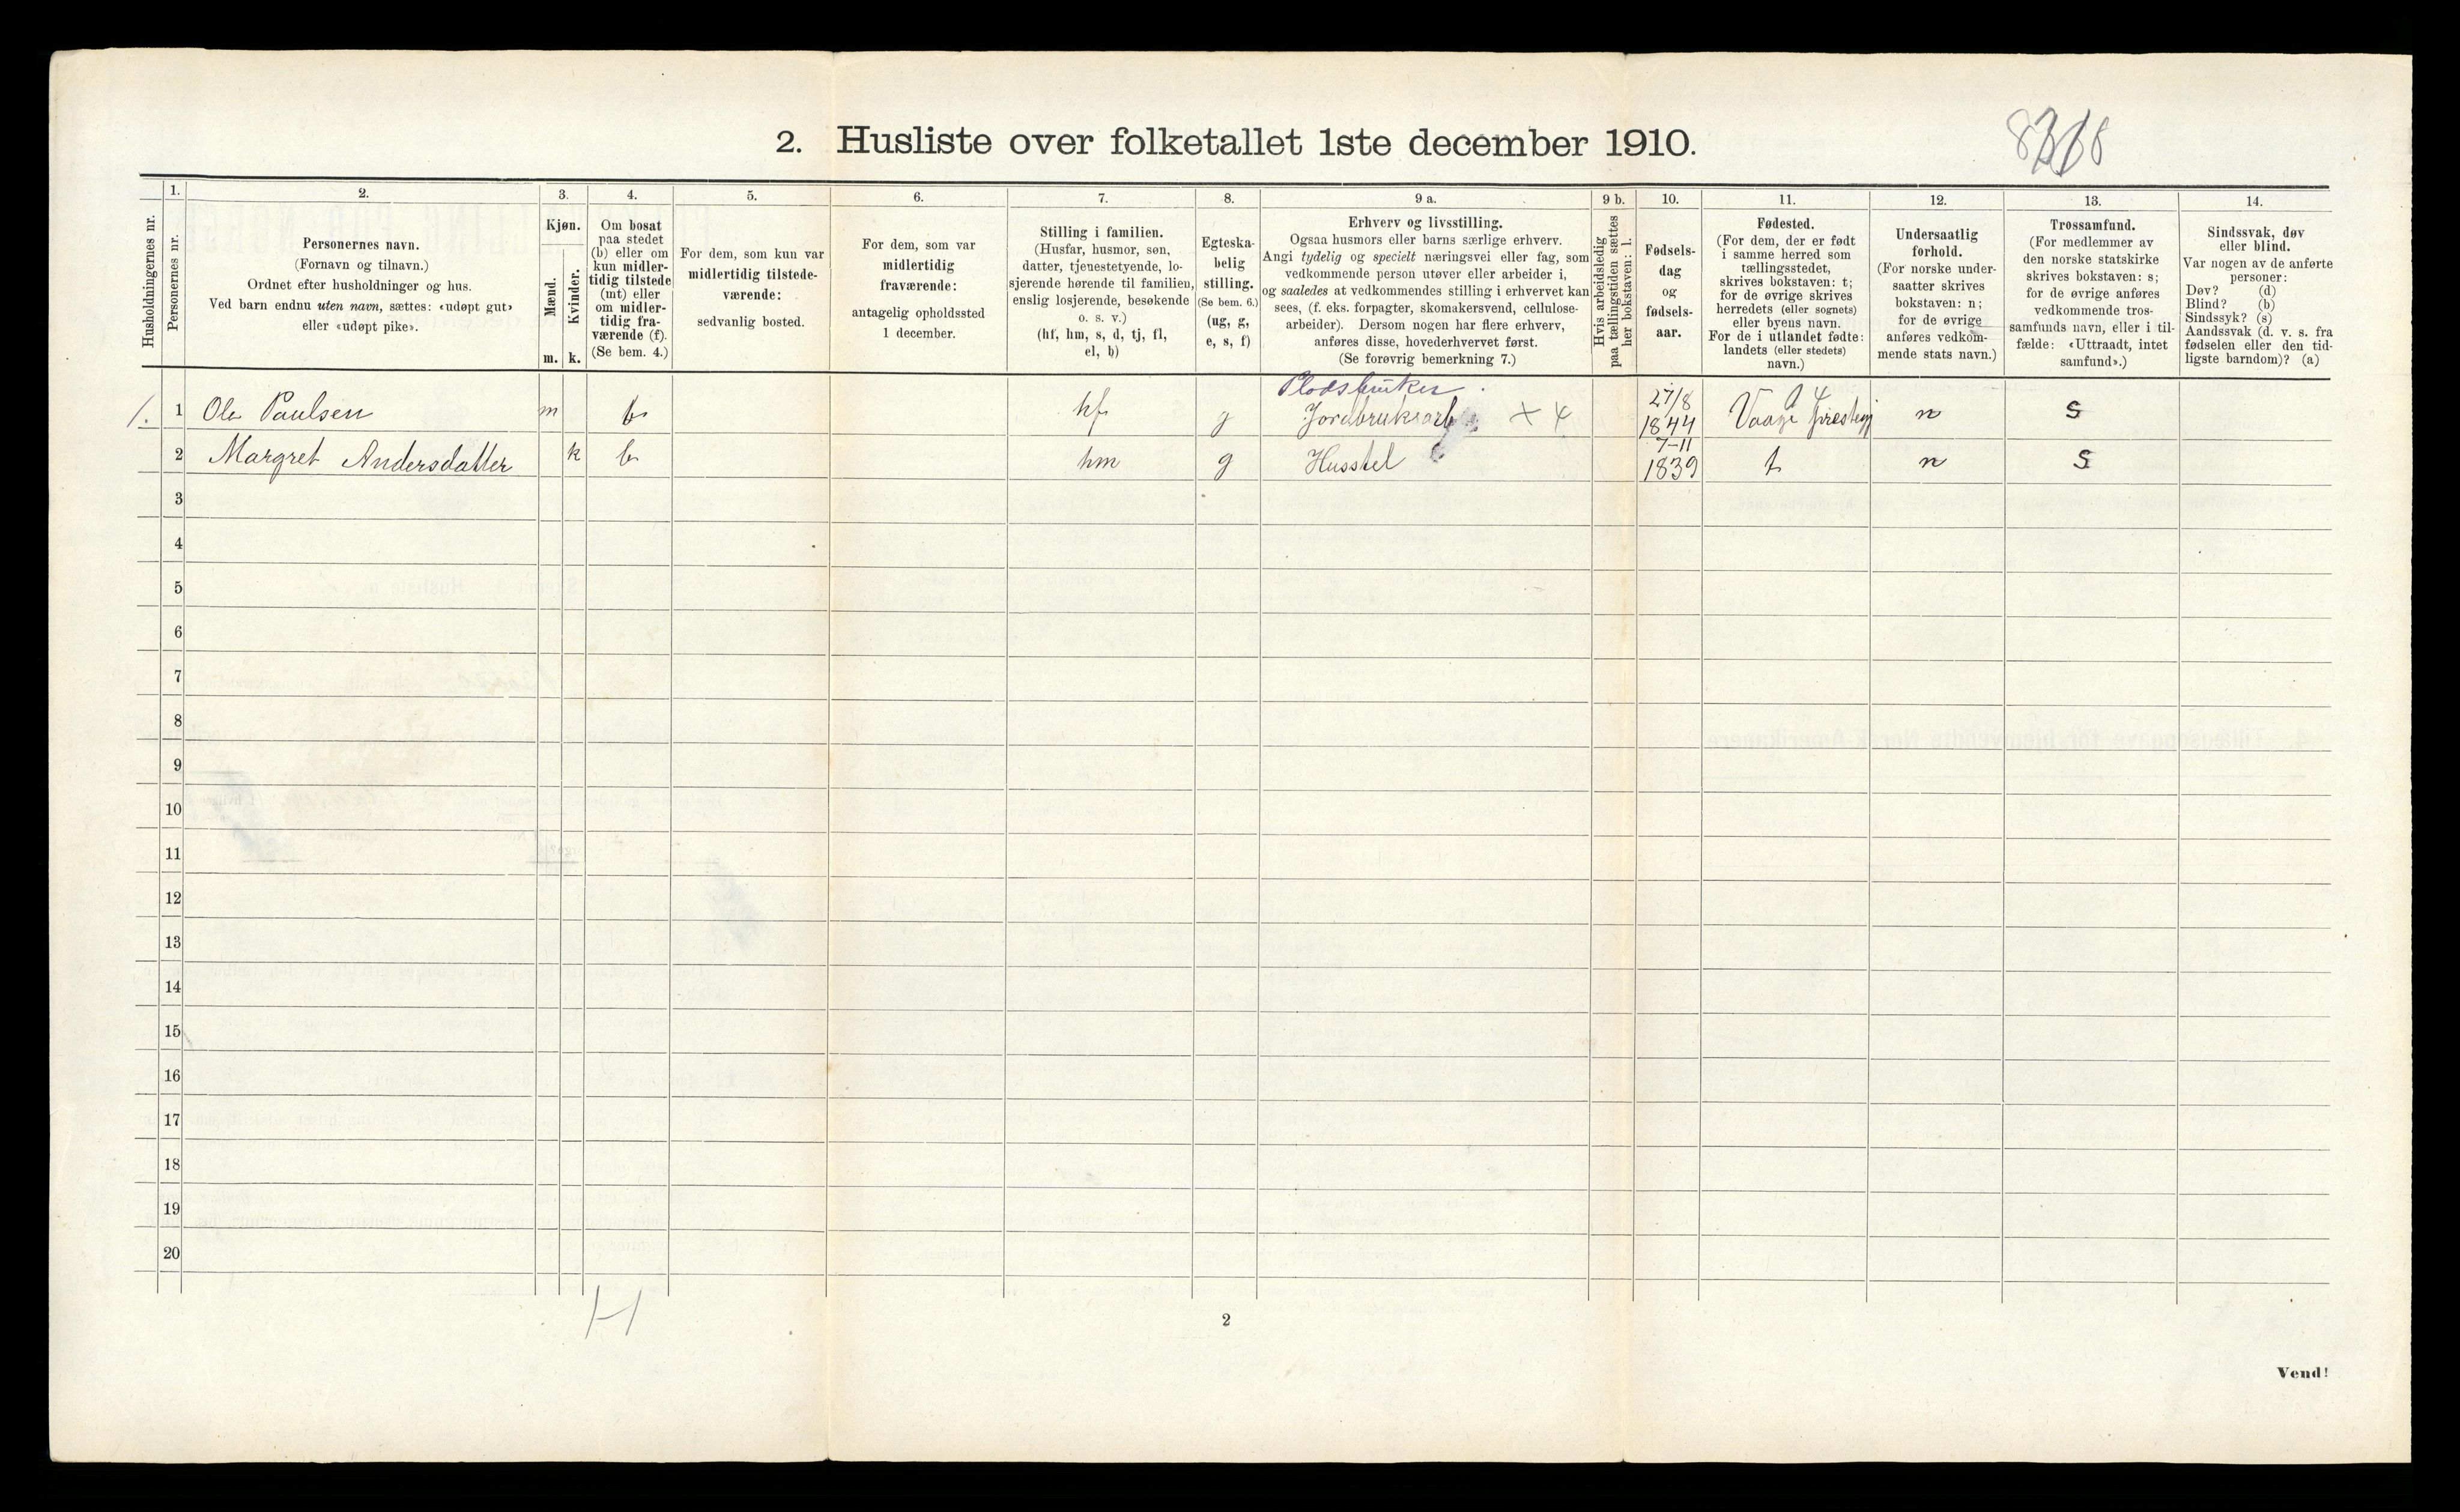 2. Husliste over folketallet 1ste december 1910.
Husholdningernes nr.
1.
Personernes nr.
2.
Personernes navn.
(Fornavn og tilnavn.)
Ordnet efter husholdninger og hus.
Ved barn endnu uten navn, sættes: «udøpt gut»
eller «udøpt pike».
3.
Kjøn.
Mænd.
m.
Kvinder.
k.
4.
Om bosat
paa stedet
(b) eller om
kun midler-
tidig tilstede
(mt) eller
om midler-
tidig fra-
værende (f).
(Se bem. 4.)
5.
For dem, som kun var
midlertidig tilstede-
værende:
sedvanlig bosted.
6.
For dem, som var
midlertidig
fraværende:
antagelig opholdssted
1 december.
7.
Stilling i familien.
(Husfar, husmor, søn,
datter, tjenestetyende, lo-
sjerende hørende til familien,
enslig losjerende, besøkende
o. s. v.)
(hf, hm, s, d, tj, fl,
el, b)
8.
Egteska-
belig
stilling.
(Se bem. 6.)
(ug, g,
e, s, f)
9 a.
Erhverv og livsstilling.
Ogsaa husmors eller barns særlige erhverv.
Angi tydelig og specielt næringsvei eller fag, som
vedkommende person utøver eller arbeider i,
og saaledes at vedkommendes stilling i erhvervet kan
sees, (f. eks. forpagter, skomakersvend, cellulose-
arbeider). Dersom nogen har flere erhverv,
anføres disse, hovederhvervet først.
(Se forøvrig bemerkning 7.)
9 b.
Hvis arbeidsledig
paa tællingstiden sættes
her bokstaven: l.
10.
Fødsels-
dag
og
fødsels-
aar.
11.
Fødested.
(For dem, der er født
i samme herred som
tællingsstedet,
skrives bokstaven: t;
for de øvrige skrives
herredets (eller sognets)
eller byens navn.
For de i utlandet fødte:
landets (eller stedets)
navn.)
12.
Undersaatlig
forhold.
(For norske under-
saatter skrives
bokstaven: n;
for de øvrige
anføres vedkom-
mende stats navn.)
13.
Trossamfund.
(For medlemmer av
den norske statskirke
skrives bokstaven: s;
for de øvrige anføres
vedkommende tros-
samfunds navn, eller i til-
fælde: «Uttraadt, intet
samfund».)
14.
Sindssvak, døv
eller blind.
Var nogen av de anførte
personer:
Døv? (d)
Blind? (b)
Sindssyk? (s)
Aandssvak (d. v. s. fra
fødselen eller den tid-
ligste barndom)? (a)
Pladsbruker
1. 1 Ole Paulsen m b hf g Jordbruksarb 27/8 1844 Vaage n s
2 Margret Andersdatter k b hm g Husstel 7-11 1839 t n s
3
4
5
6
7
8
9
10
11
12
13
14
15
16
17
18
19
20
H
2
Vend!